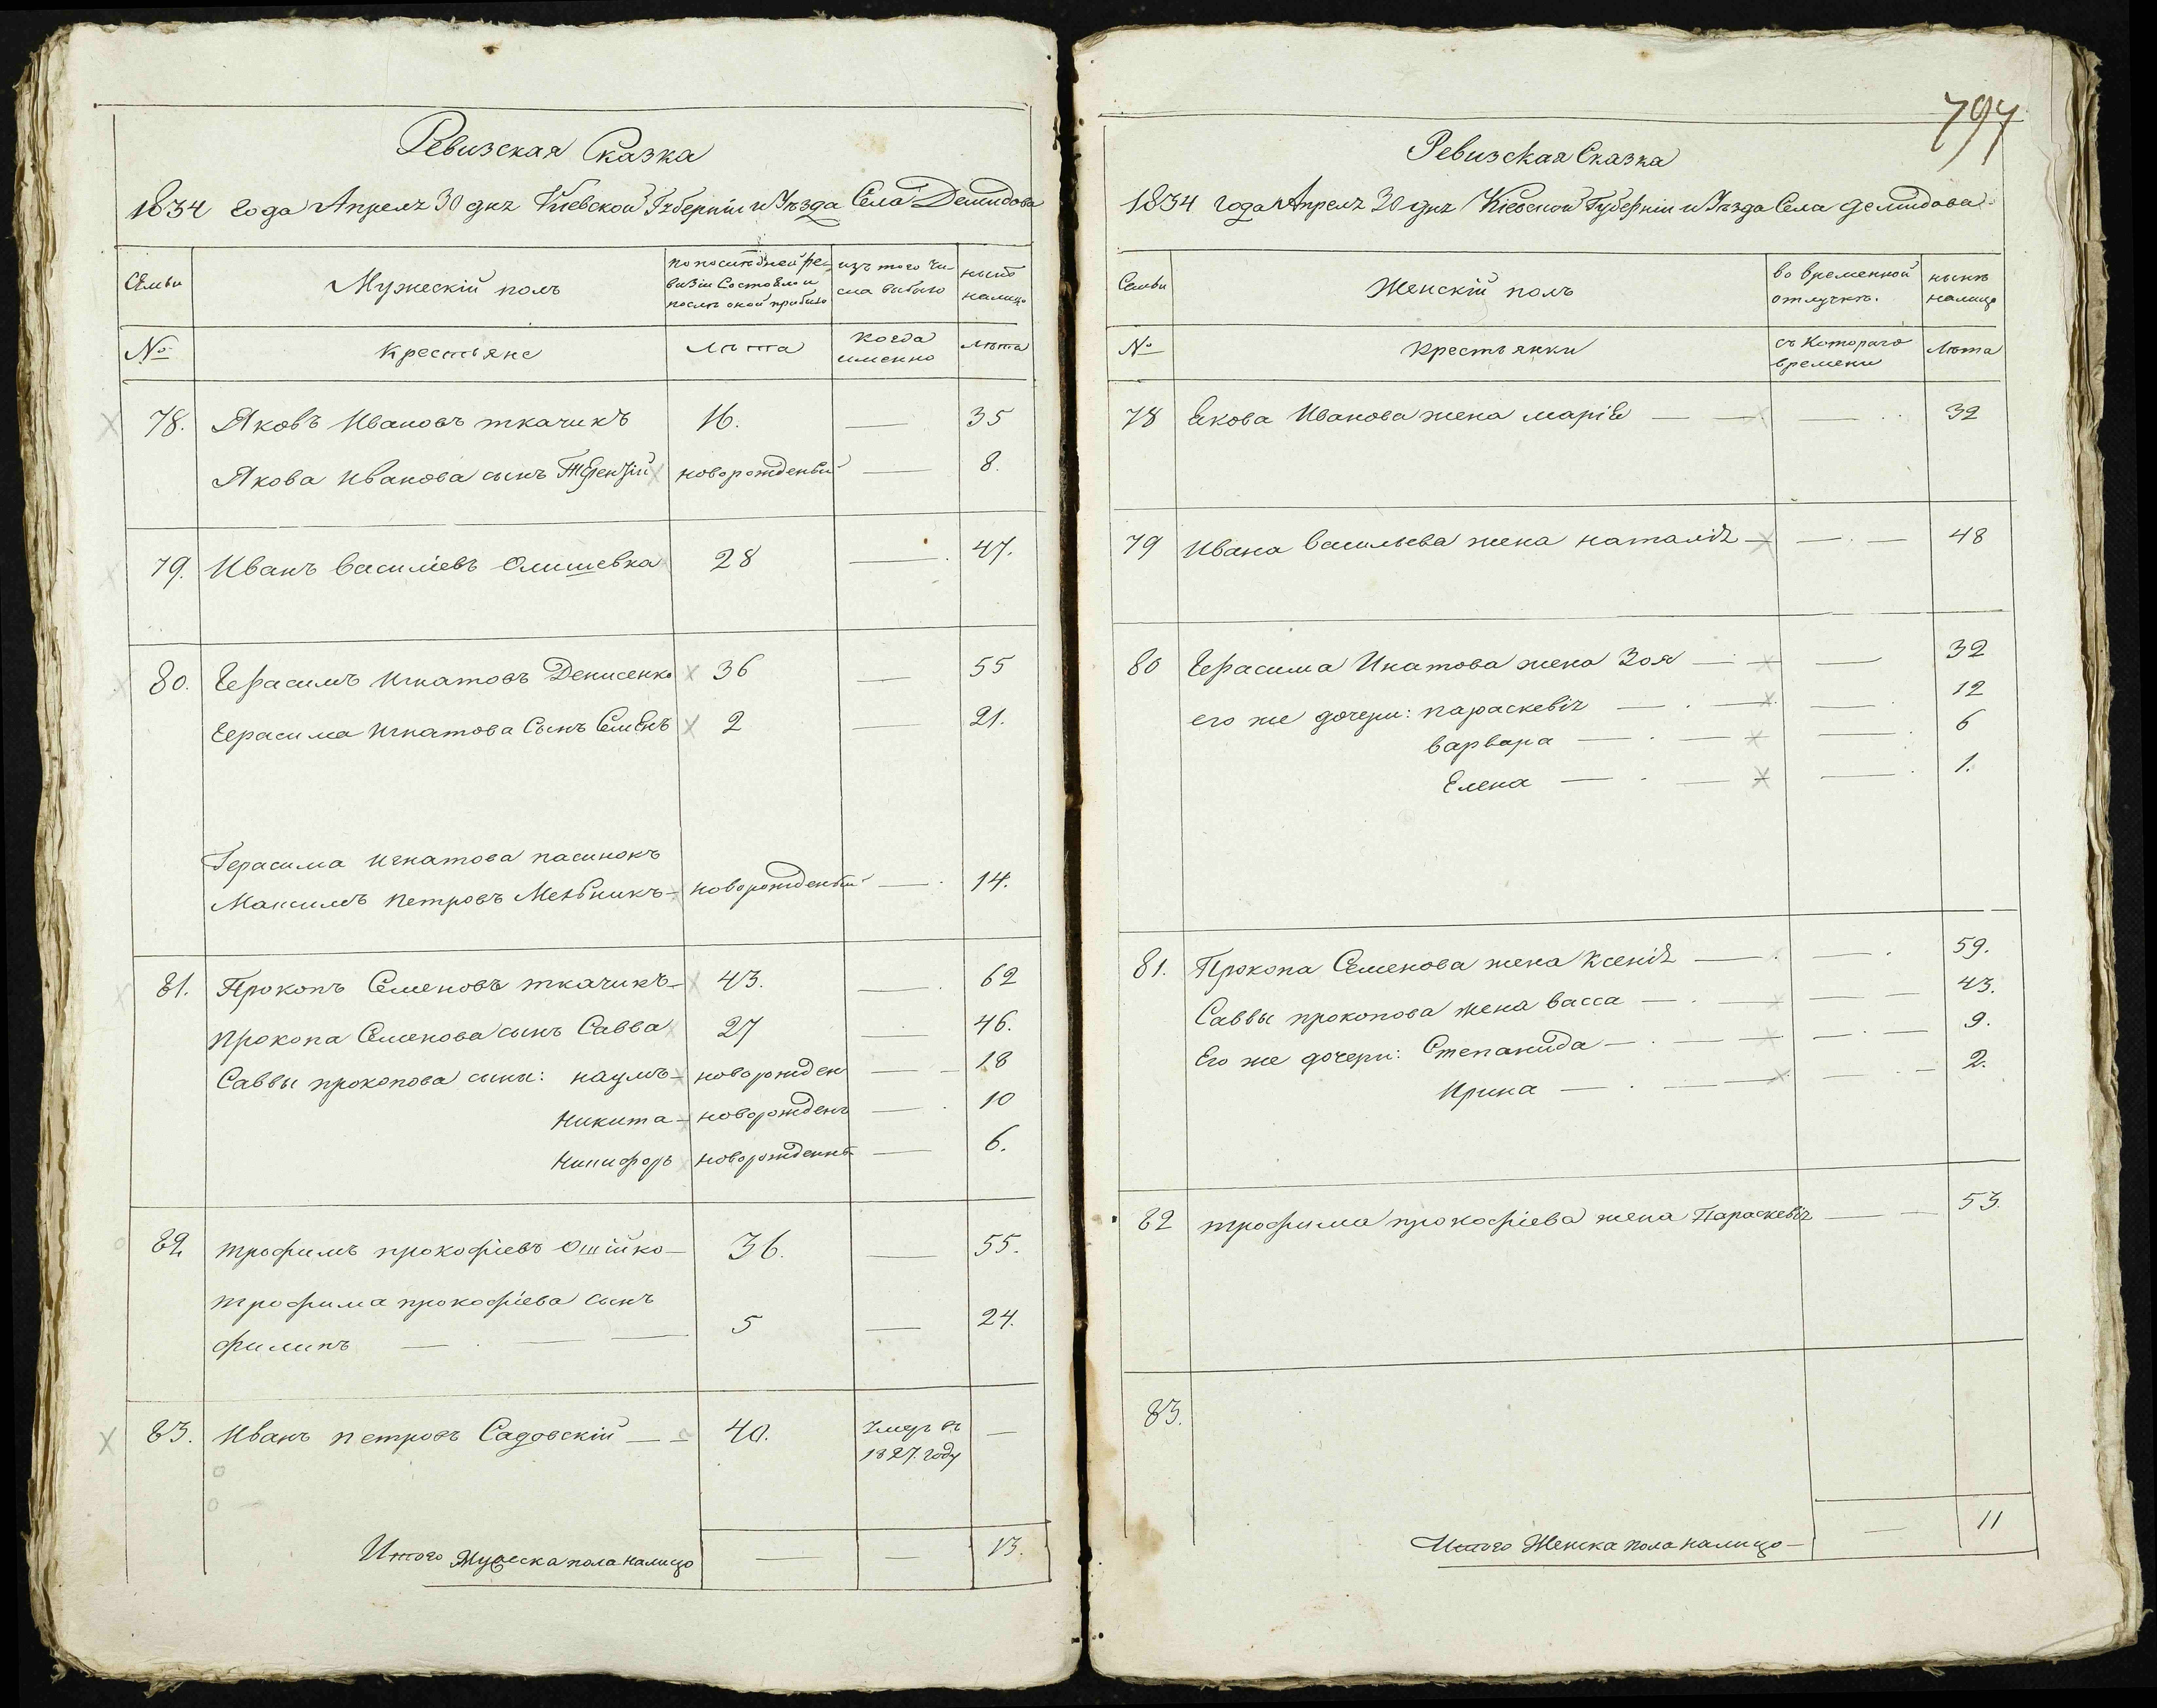 Ревизская Сказка
1834 года Апреля 30 дня Кіевской Губерніи и Уѣзда Села Демидова
Семьи
Мужескій полъ
по последней ре-
визіи Состояло и
послѣ оной прибыло
изъ того чи-
сла выбыло
нынѣ
налицо
№
Крестьяне
Лѣта
когда
именно
Лѣта
78. Яковъ Ивановъ ткачикъ 16. — 35
Якова Иванова сынъ Терентій новорожденый — 8.
79. Иванъ Василіевъ Олишевка 28 — 47.
80. Герасимъ Игнатовъ Денисенко 36 — 55
Герасима Игнатова Сынъ Семенъ 2 — 21.
Герасима Игнатова пасинокъ
Максимъ Петровъ Мельникъ новорожденый — 14.
81. Прокопъ Семеновъ ткачикъ 43. — 62
Прокопа Семенова сынъ Савва 27 — 46.
Саввы прокопова сыны: наумъ новорожден — 18
Никита новорожденъ — 10
Никифоръ новорожденны — 6.
82 трофимъ прокофіевъ Ошійко 36. — 55.
трофима прокофіева сынъ
филипъ — 5 — 24.
83. Иванъ петровъ Садовскій — 40. Умеръ въ —
1827. году
Итого Мужеска пола налицо — — 13.
797
Ревизская Сказка
1834 года Апреля 30 дня Кіевской Губерніи и Уѣзда Села Демидова
Семьи
Женскій полъ
во временной
отлучкѣ.
нынѣ
налицо
№
Крестьянки
съ Котораго
времени
Лѣта
78 Якова Иванова жена марія — — 32
79 Ивана Васильева жена наталія — — 48
80 Герасима Инатова жена Зоя — — 32
его же дочери: параскевія — — 12
варвара — — 6
Елена — — 1.
81. Прокопа Семенова жена Ксенія — — 59.
Саввы прокопова жена васса — — 43.
Его же дочери: Степанида — — 9.
Ирина — — 2.
82 трофима прокофіева жена Параскевія — 53.
83.
Итого Женска пола налицо — 11